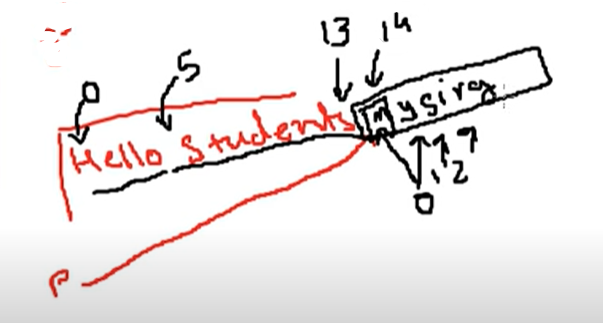 13 14
0 5
Hello Students mysirg
0 1 2
P